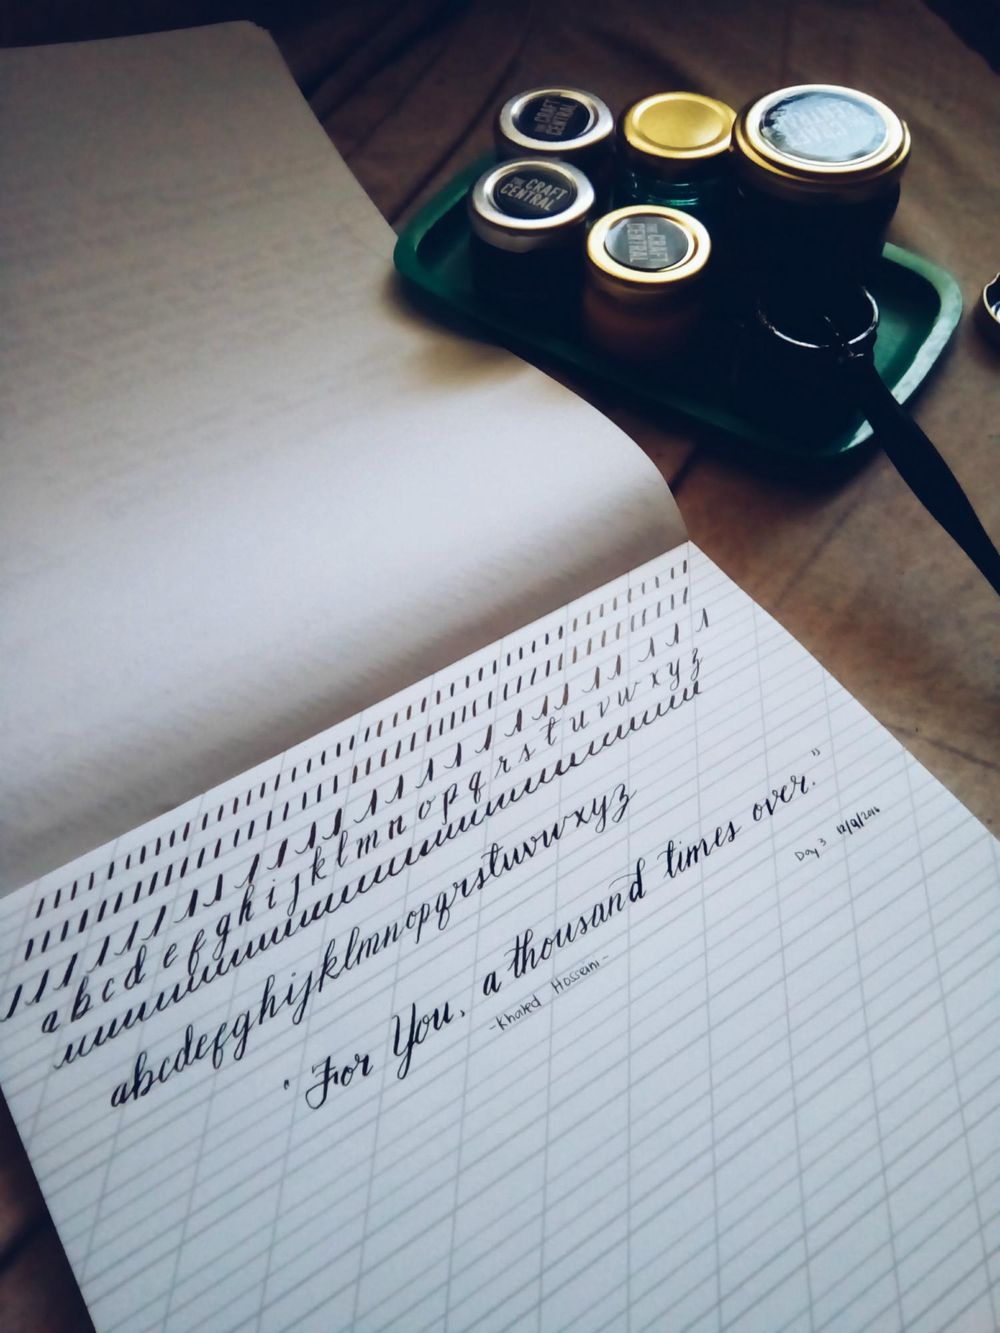 THE CRAFT CENTRAL
THE CRAFT CENTRAL
THE CRAFT CENTRAL
THE CRAFT CENTRAL
a b c d e f g h i j k l m n o p q r s t u v w x y z
abcdefghijklmnopqrstuvwxyz
"For You, a thousand times over."
-Khaled Hosseini-
Day 3 12/9/2016